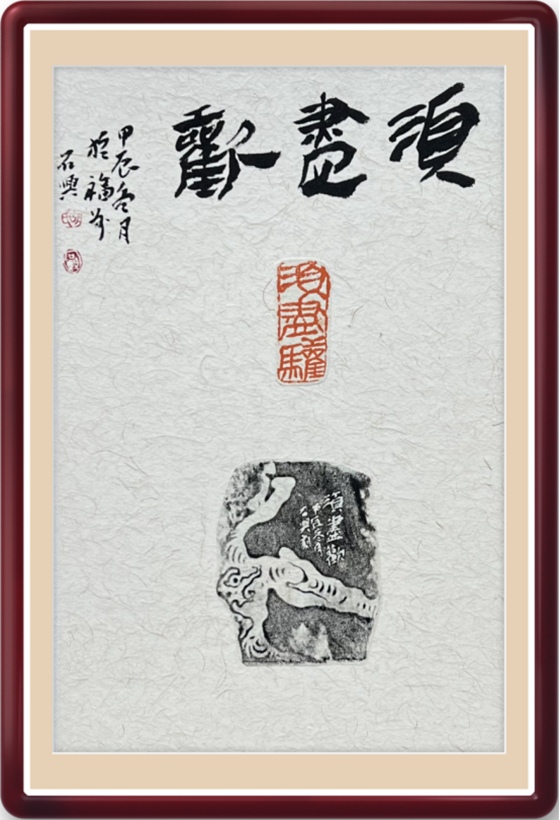 須盡歡
甲辰冬月
於福州
石興
須盡驩
須盡歡
甲辰冬月
石興刻